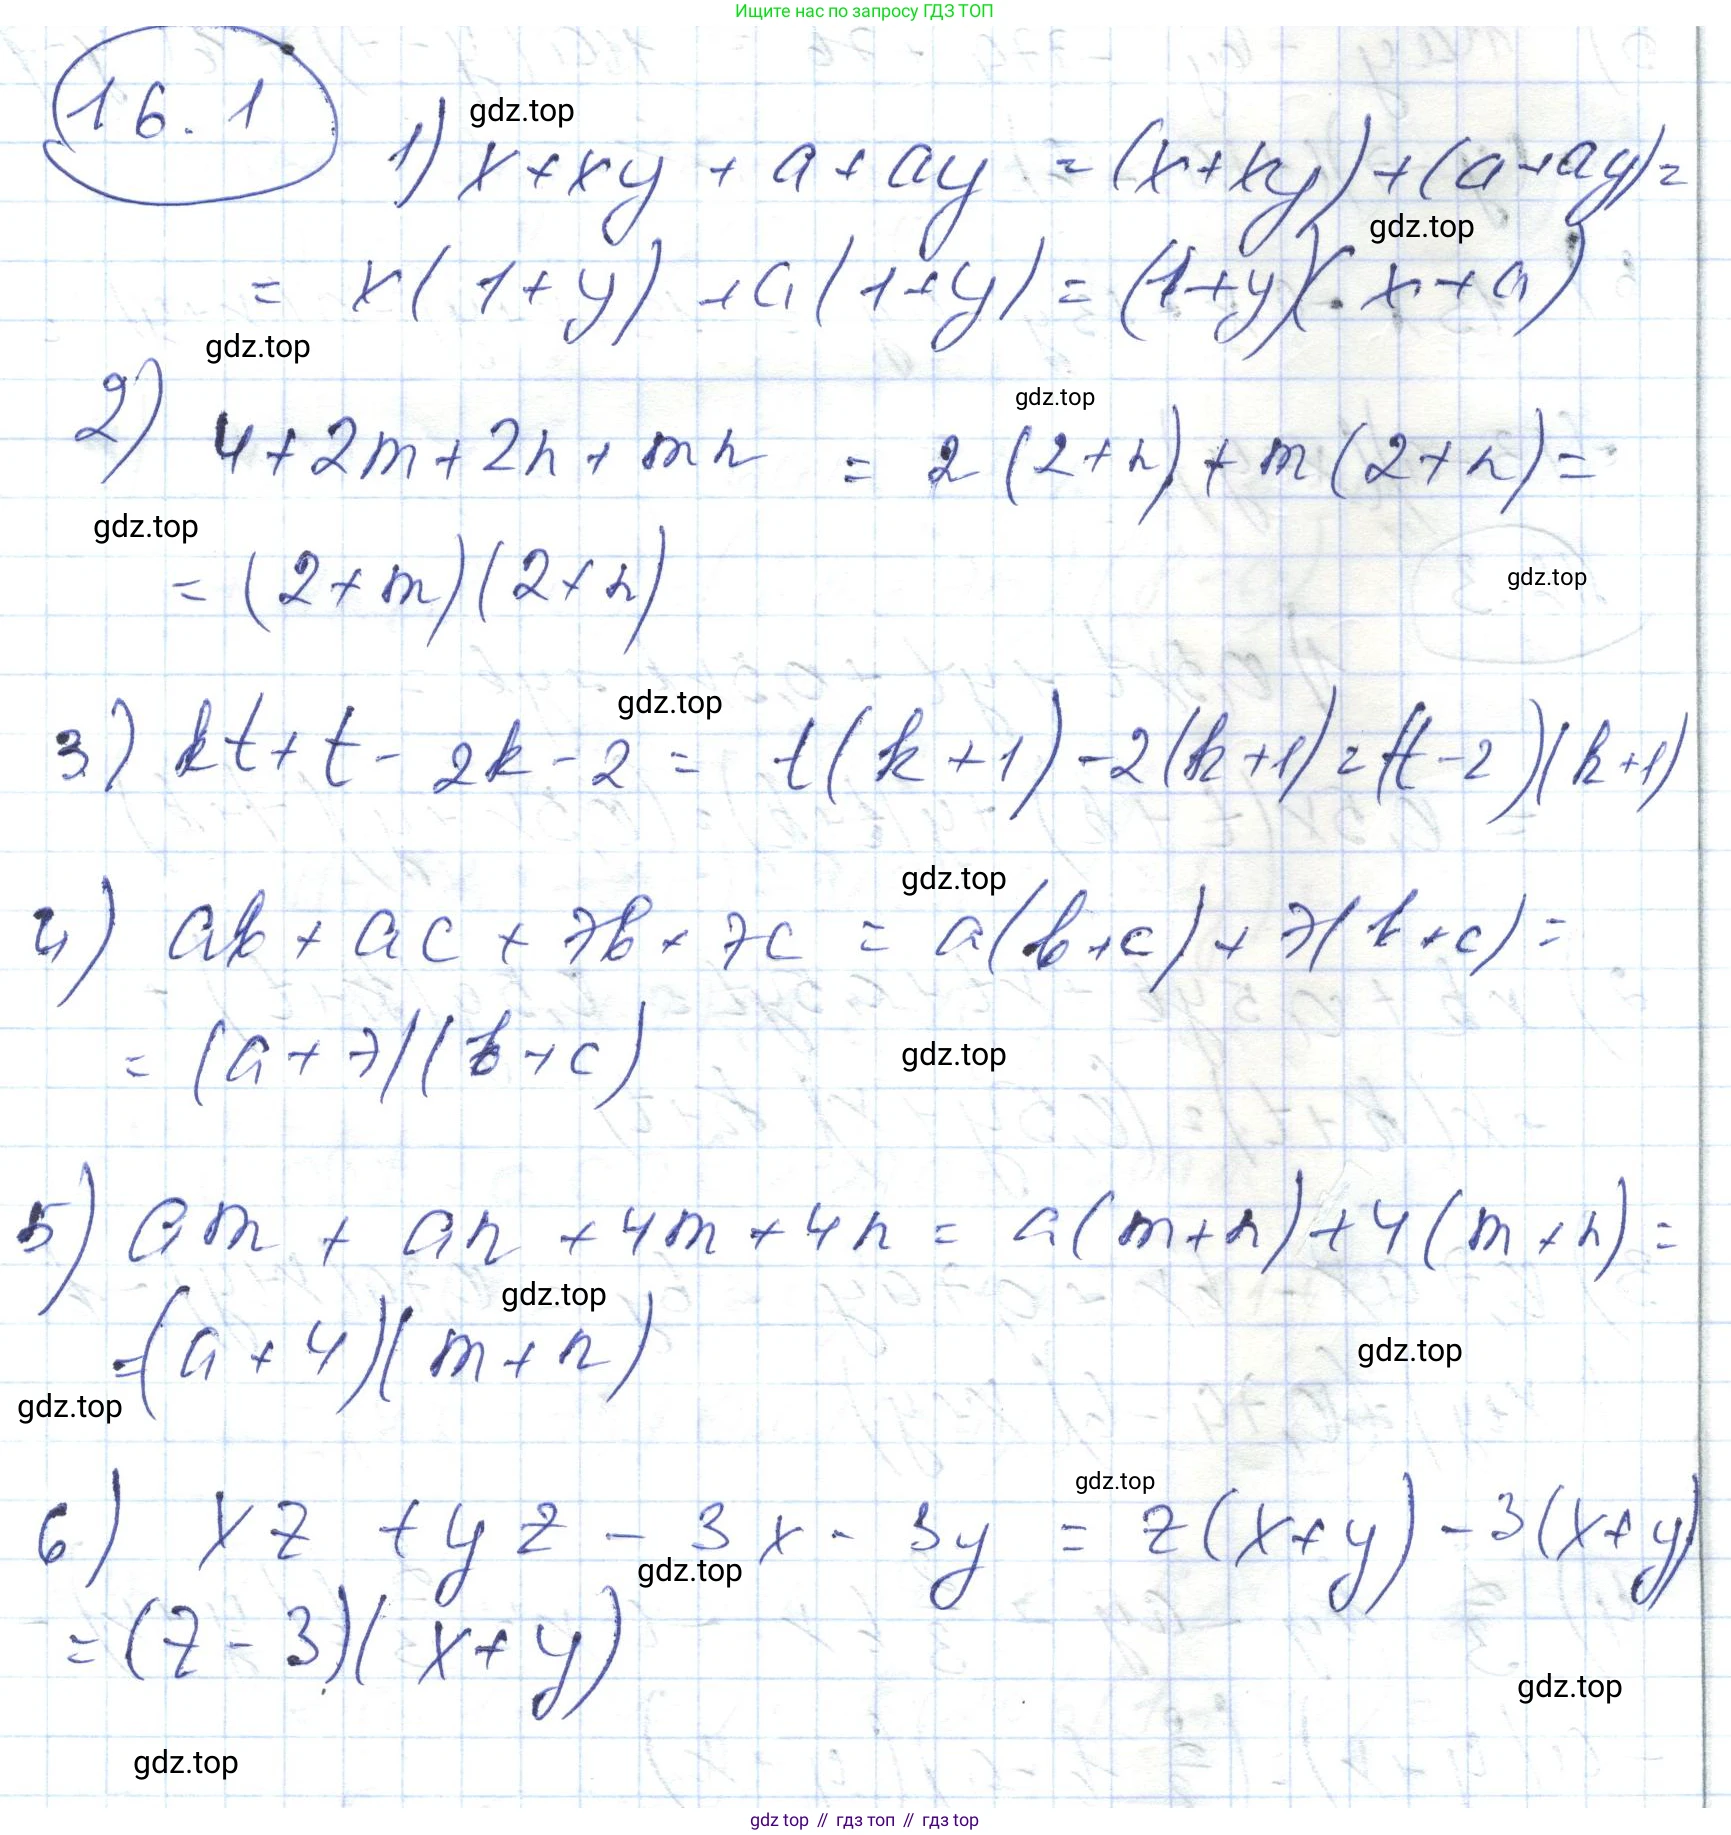 Ищите нас по запросу ГДЗ ТОП
16.1
gdz.top
1) x + xy + a + ay = (x + xy) + (a + ay) =
gdz.top
= x(1 + y) + a(1 + y) = (1 + y)(x + a)
gdz.top
gdz.top
2) 4 + 2m + 2n + mn = 2(2 + n) + m(2 + n) =
gdz.top
gdz.top
= (2 + m)(2 + n)
gdz.top
3) kt + t - 2k - 2 = t(k + 1) - 2(k + 1) = (t - 2)(k + 1)
gdz.top
4) ab + ac + 7b + 7c = a(b + c) + 7(b + c) =
= (a + 7)(b + c)
gdz.top
5) am + an + 4m + 4n = a(m + n) + 4(m + n) =
gdz.top
= (a + 4)(m + n)
gdz.top
gdz.top
gdz.top
6) xz + yz - 3x - 3y = z(x + y) - 3(x + y)
gdz.top
= (z - 3)(x + y)
gdz.top
gdz.top
gdz top // гдз топ // гдз top